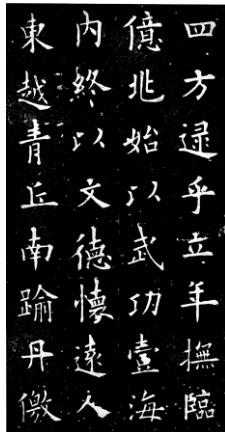 四方逮乎立年撫臨
億兆始以武功壹海
内終以文德懷遠人
東越青丘南踰丹徼